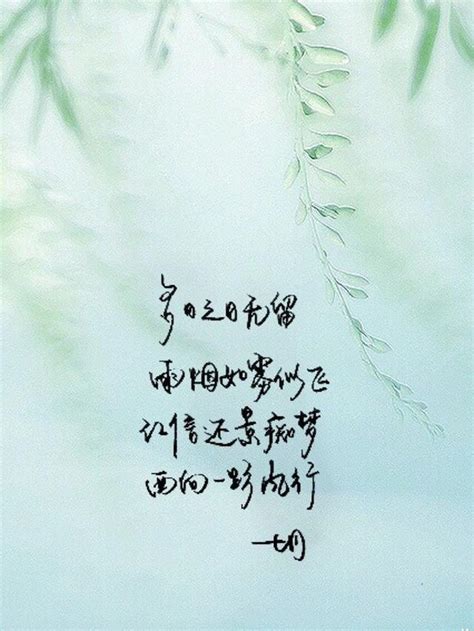 日之日无留
雨烟如雾似飞
信还景痴梦
西向一路风行
一七月